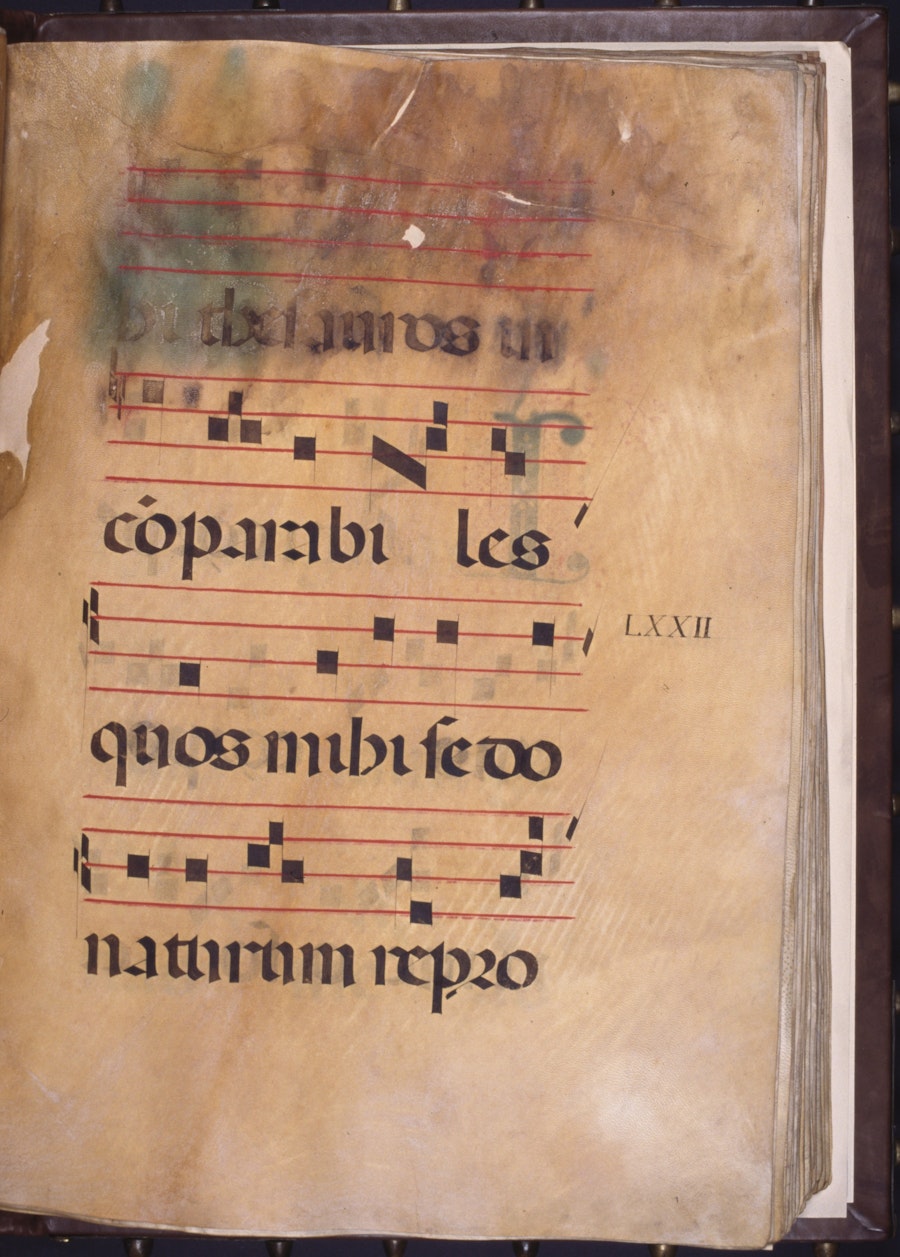 thesauros in
cōparabi les
quos mihi se do
LXXII
naturum repro